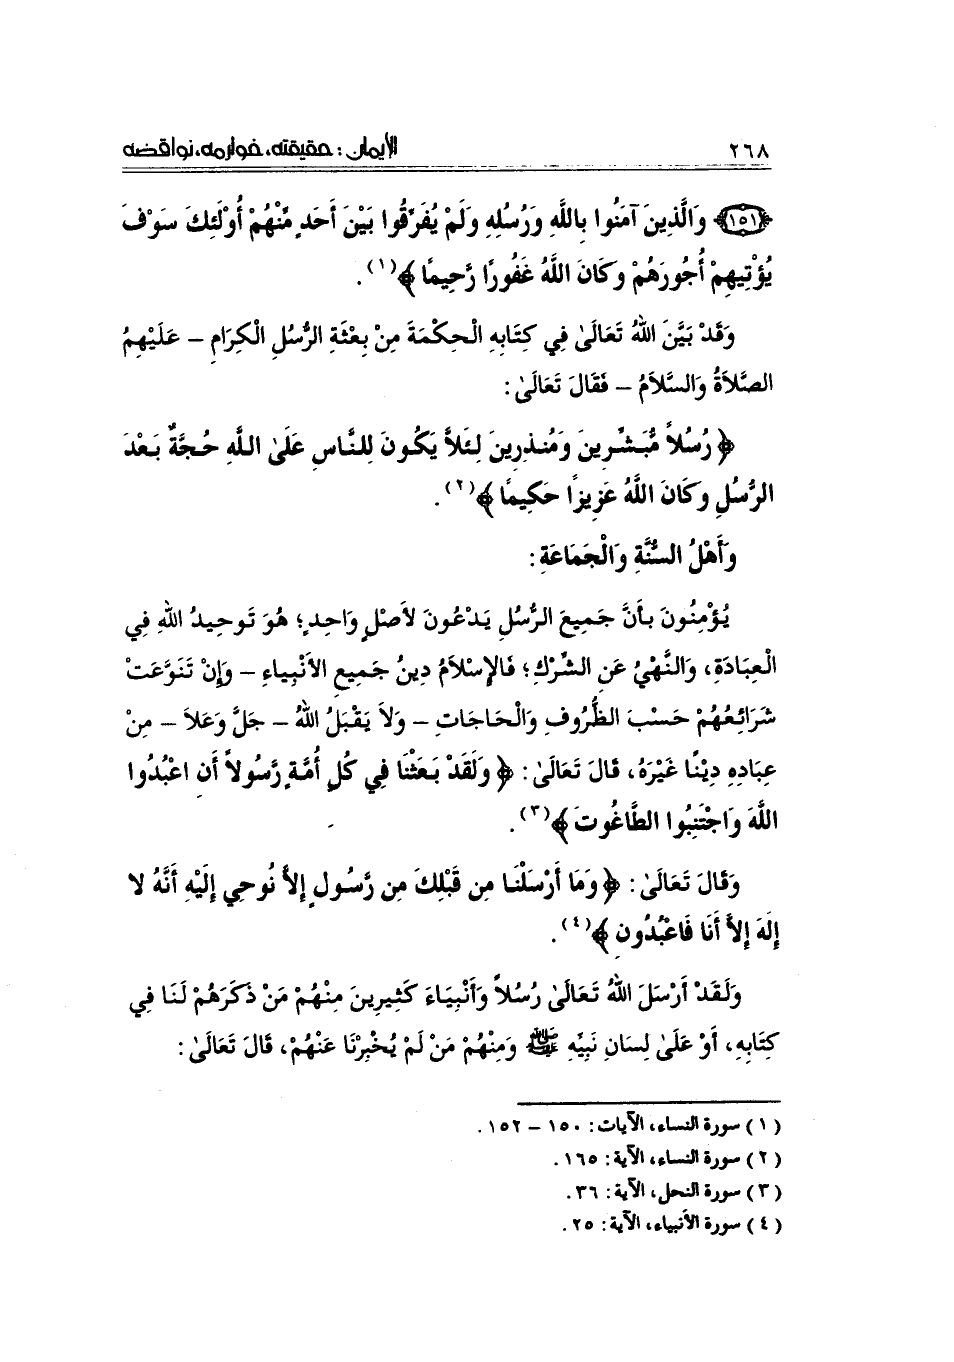 ٢٦٨
الإيمان : حقيقته، خوارمه، نواقضه
﴿١٥١﴾ وَالَّذِينَ آمَنُوا بِاللَّهِ وَرُسُلِهِ وَلَمْ يُفَرِّقُوا بَيْنَ أَحَدٍ مِّنْهُمْ أُوْلَئِكَ سَوْفَ
يُؤْتِيهِمْ أُجُورَهُمْ وَكَانَ اللَّهُ غَفُورًا رَّحِيمًا ﴾(١) .
وَقَدْ بَيَّنَ اللهُ تَعَالَىٰ فِي كِتَابِهِ الْحِكْمَةَ مِنْ بِعْثَةِ الرُّسُلِ الْكِرَامِ – عَلَيْهِمُ
الصَّلاَةُ وَالسَّلاَمُ – فَقَالَ تَعَالَىٰ :
﴿ رُسُلاً مُّبَشِّرِينَ وَمُنذِرِينَ لِئَلاَّ يَكُونَ لِلنَّاسِ عَلَىٰ اللَّهِ حُجَّةٌ بَعْدَ
الرُّسُلِ وَكَانَ اللَّهُ عَزِيزًا حَكِيمًا ﴾(٢) .
وَأَهْلُ السُّنَّةِ وَالْجَمَاعَةِ :
يُؤْمِنُونَ بِأَنَّ جَمِيعَ الرُّسُلِ يَدْعُونَ لأَصْلٍ وَاحِدٍ؛ هُوَ تَوحِيدُ اللهِ فِي
الْعِبَادَةِ، وَالنَّهْيُ عَنِ الشِّرْكِ؛ فَالإِسْلاَمُ دِينُ جَمِيعِ الأَنْبِيَاءِ – وَإِنْ تَنَوَّعَتْ
شَرَائِعُهُمْ حَسْبَ الظُّرُوفِ وَالْحَاجَاتِ – وَلاَ يَقْبَلُ اللهُ – جَلَّ وَعَلاَ – مِنْ
عِبَادِهِ دِيْنًا غَيْرَهُ، قَالَ تَعَالَىٰ : ﴿ وَلَقَدْ بَعَثْنَا فِي كُلِّ أُمَّةٍ رَّسُولاً أَنِ اعْبُدُوا
اللَّهَ وَاجْتَنِبُوا الطَّاغُوتَ ﴾(٣) .
وَقَالَ تَعَالَىٰ : ﴿ وَمَا أَرْسَلْنَا مِن قَبْلِكَ مِن رَّسُولٍ إِلاَّ نُوحِي إِلَيْهِ أَنَّهُ لا
إِلَهَ إِلاَّ أَنَا فَاعْبُدُونِ ﴾(٤) .
وَلَقَدْ أَرْسَلَ اللهُ تَعَالَىٰ رُسُلاً وَأَنْبِيَاءَ كَثِيرِينَ مِنْهُمْ مَنْ ذَكَرَهُمْ لَنَا فِي
كِتَابِهِ، أَوْ عَلَىٰ لِسَانِ نَبِيِّهِ ﷺ وَمِنْهُمْ مَنْ لَمْ يُخْبِرْنَا عَنْهُمْ، قَالَ تَعَالَىٰ :
(١) سورة النساء، الآيات : ١٥٠ – ١٥٢ .
(٢) سورة النساء، الآية : ١٦٥ .
(٣) سورة النحل، الآية : ٣٦ .
(٤) سورة الأنبياء، الآية : ٢٥ .